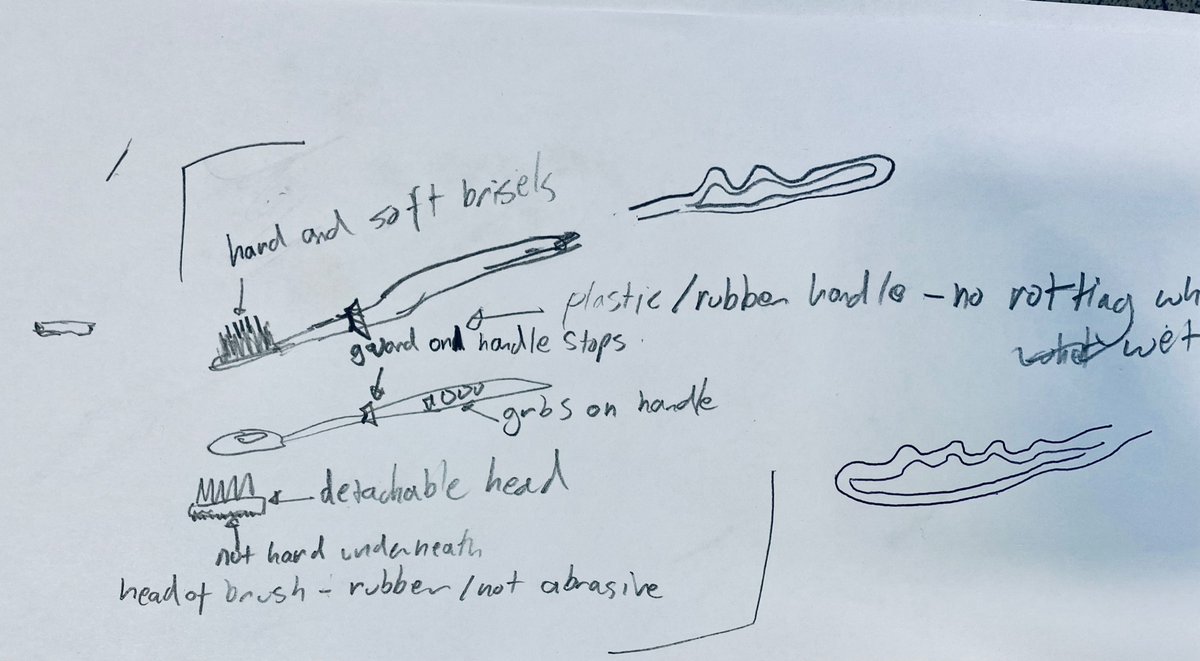 hard and soft brisels
plastic/rubber handle - no rotting wh
wet
guard on handle stops
grbs on handle
detachable head
not hard underneath
head of brush - rubber/not abrasive